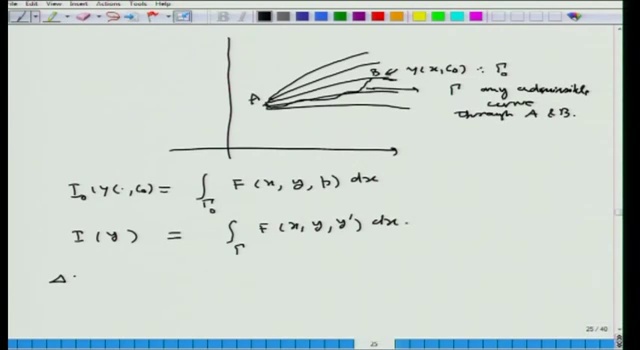 Edit View Insert Actions Tools Help
A
B
y(x, c₀) : Γ₀
Γ any admissible
curve
through A & B.
I₀(y(·, c₀) = ∫_Γ₀ F(x, y, p) dx
I(y) = ∫_Γ F(x, y, y') dx.
Δ
25 / 40
25